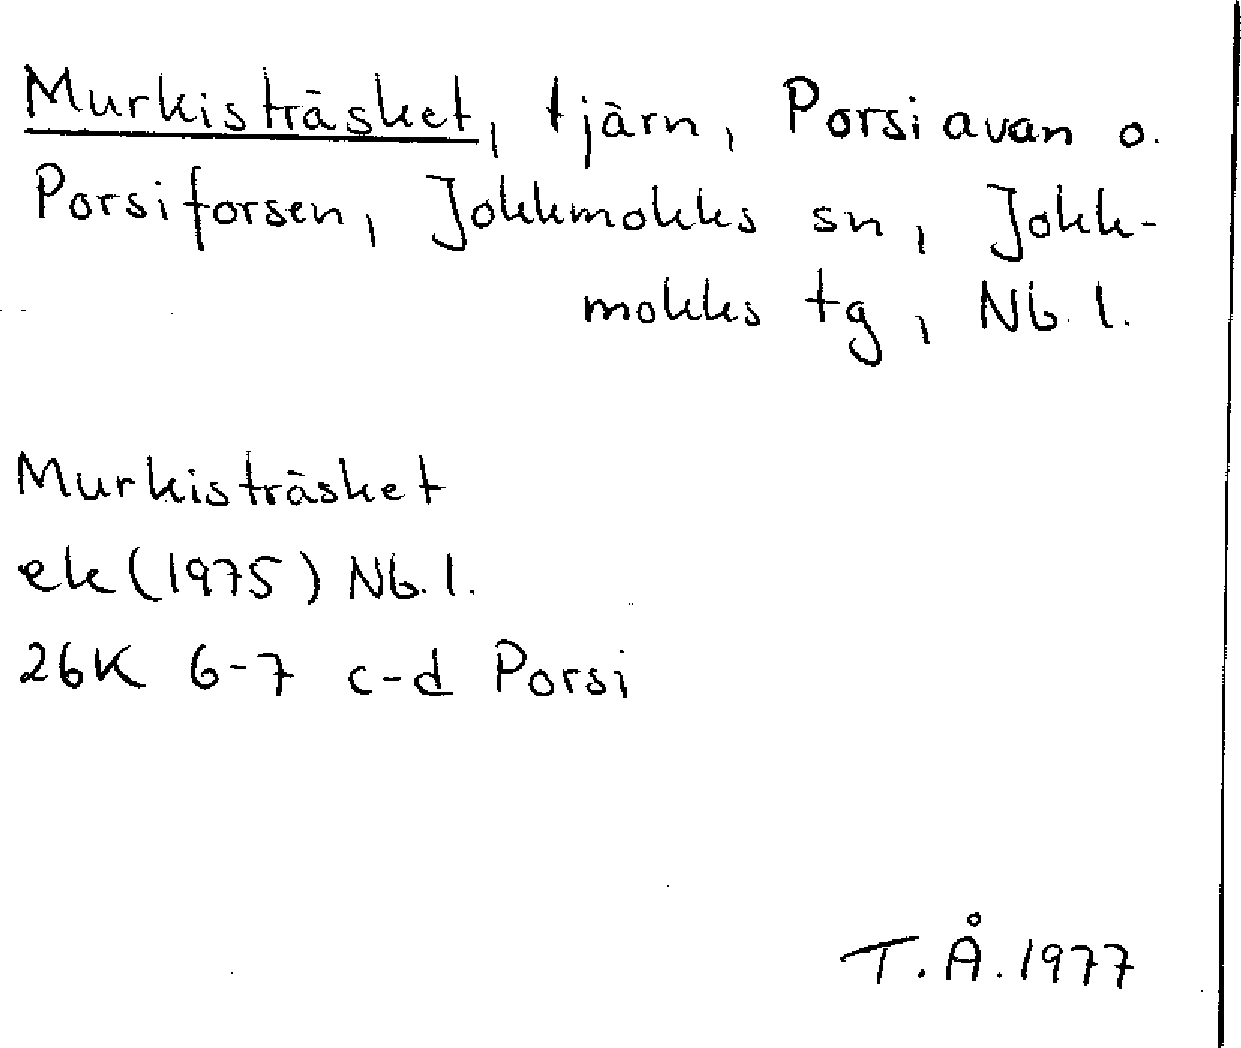 Murkisträsket, tjärn, Porsiavan o.
Porsiforsen, Jokkmokks sn, Jokk-
mokks tg, Nb. l.
Murkisträsket
ek (1975) Nb. l.
26K 6-7 c-d Porsi
T. Å. 1977